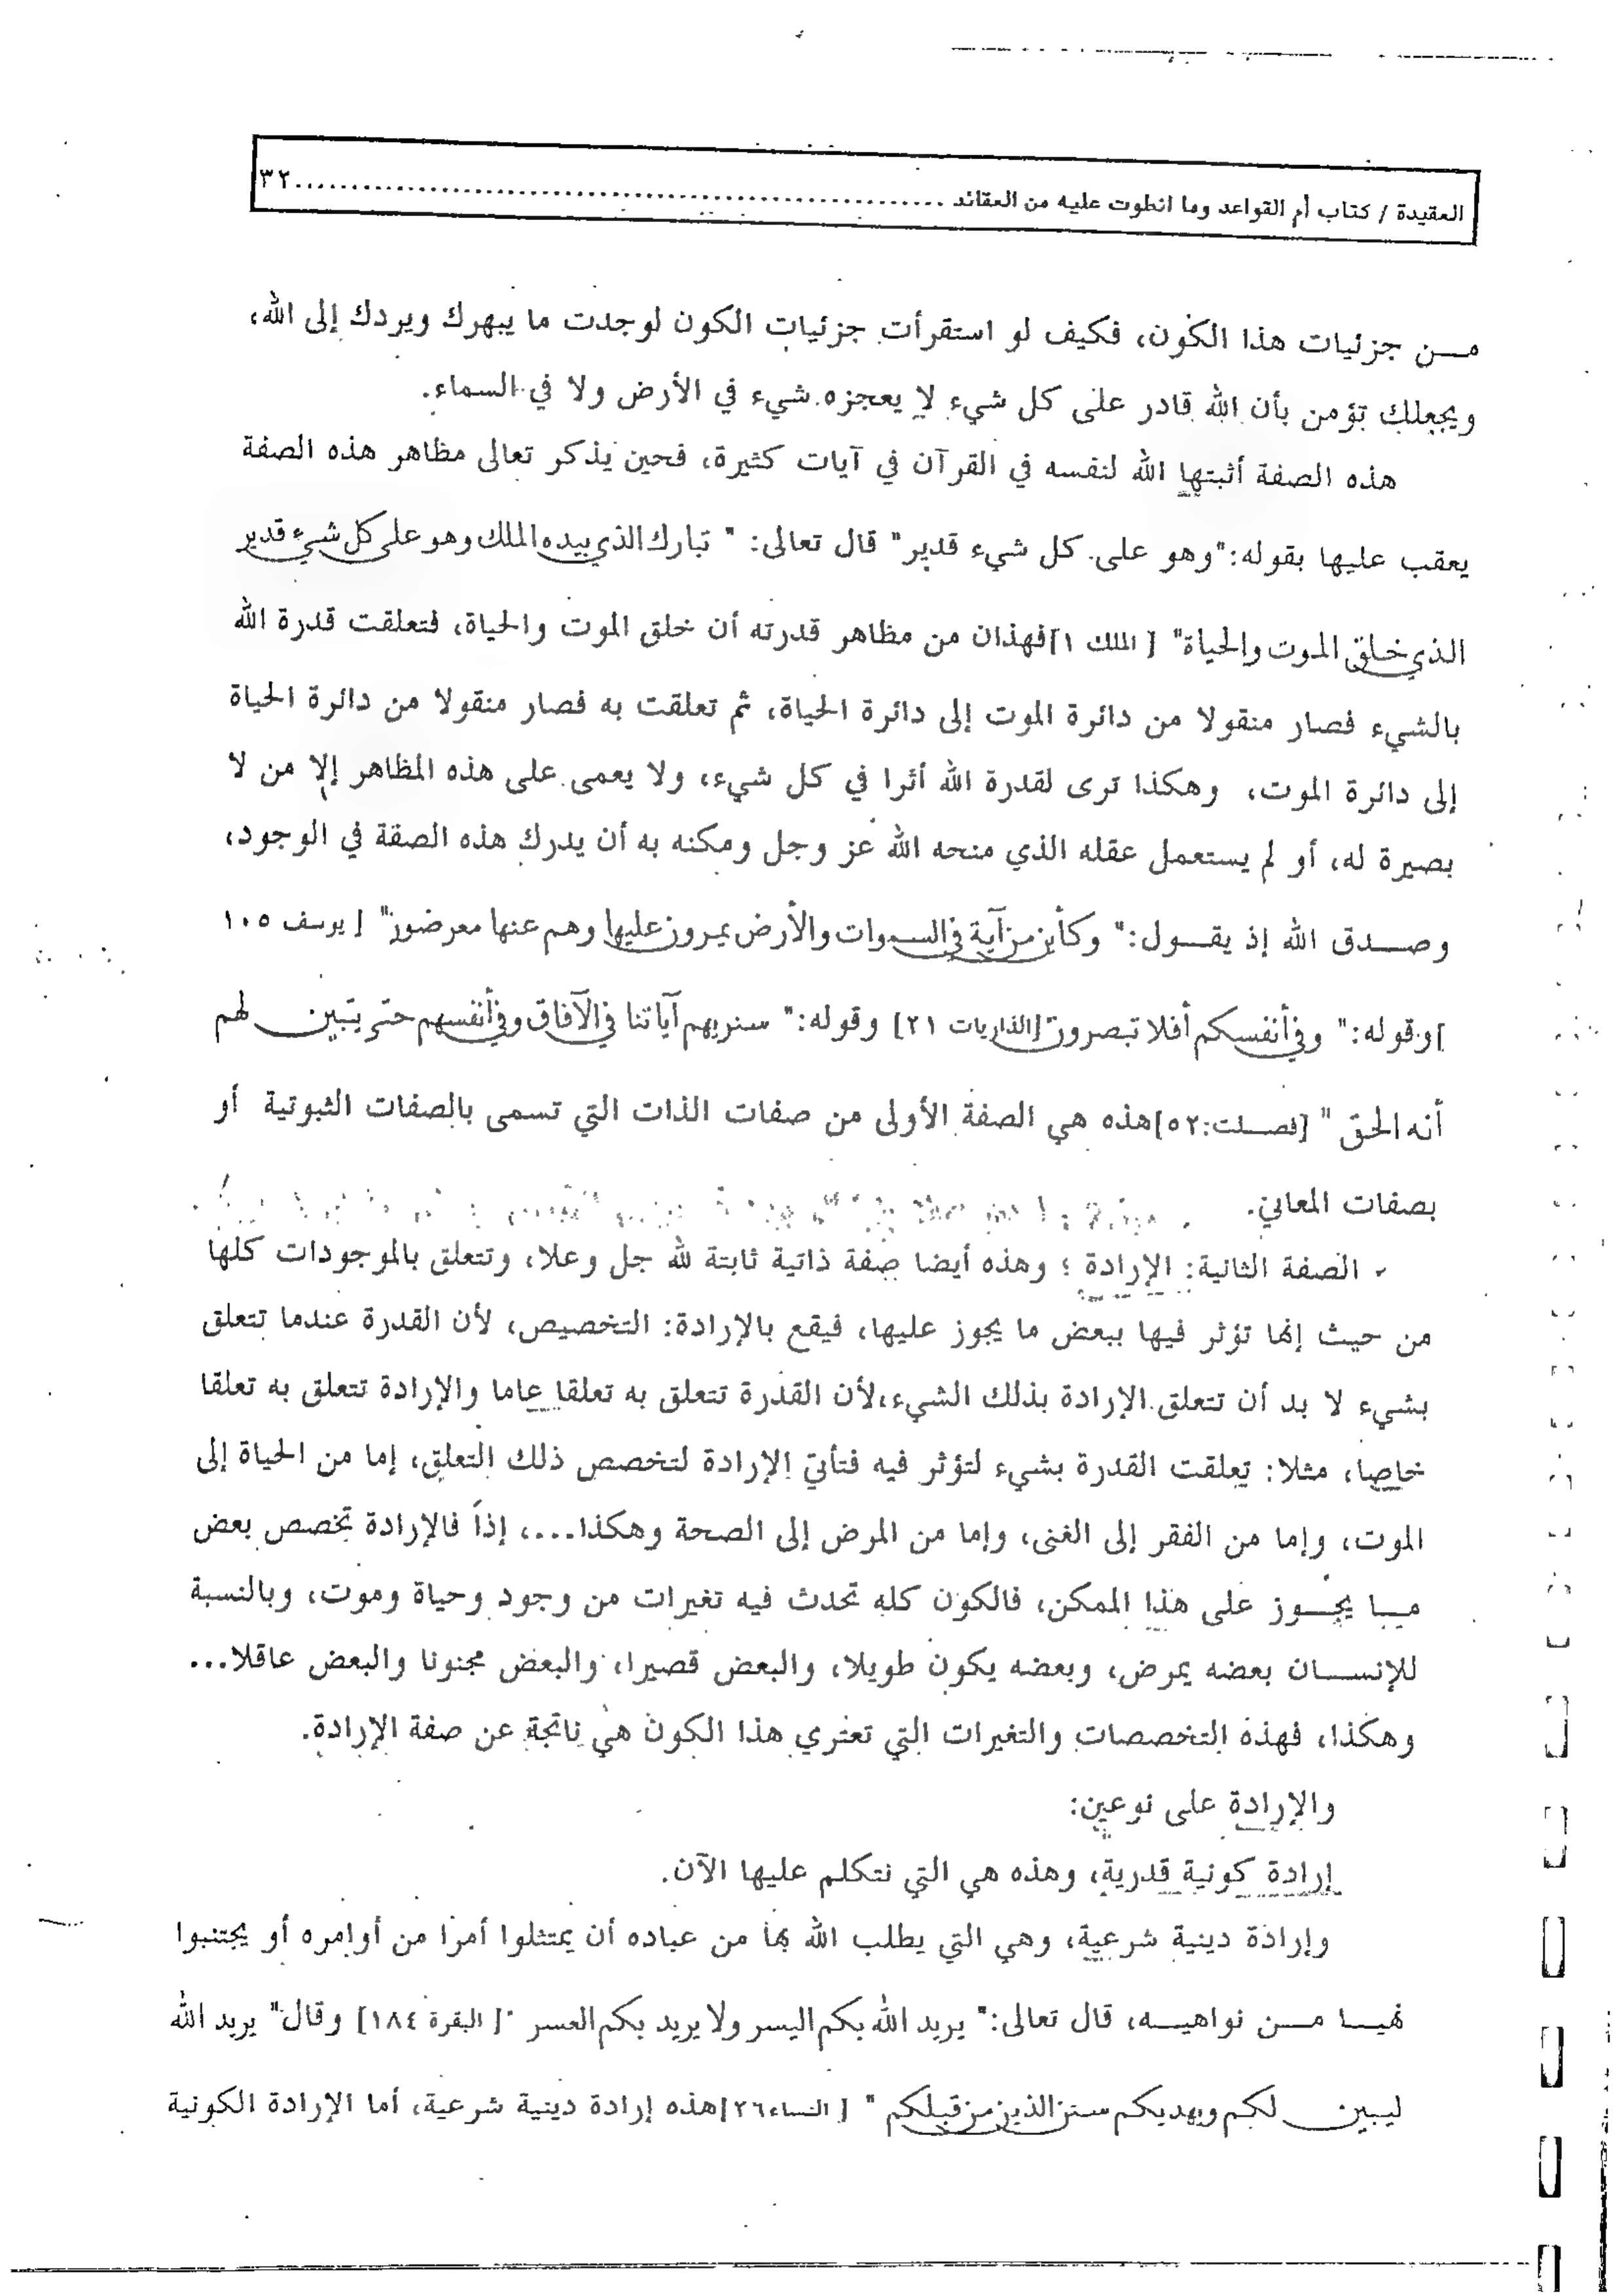 العقيدة / كتاب أم القواعد وما انطوت عليه من العقائد ............................................................ ٣٢
مـــن جزئيات هذا الكون، فكيف لو استقرأت جزئيات الكون لوجدت ما يبهرك ويردك إلى الله،
ويجعلك تؤمن بأن الله قادر على كل شيء لا يعجزه شيء في الأرض ولا في السماء.
هذه الصفة أثبتها الله لنفسه في القرآن في آيات كثيرة، فحين يذكر تعالى مظاهر هذه الصفة
يعقب عليها بقوله:"وهو على كل شيء قدير" قال تعالى: " تبارك الذي بيده الملك وهو على كل شيء قدير
الذي خلق الموت والحياة" [ الملك ١]فهذان من مظاهر قدرته أن خلق الموت والحياة، فتعلقت قدرة الله
بالشيء فصار منقولا من دائرة الموت إلى دائرة الحياة، ثم تعلقت به فصار منقولا من دائرة الحياة
إلى دائرة الموت، وهكذا ترى لقدرة الله أثرا في كل شيء، ولا يعمى على هذه المظاهر إلا من لا
بصيرة له، أو لم يستعمل عقله الذي منحه الله عز وجل ومكنه به أن يدرك هذه الصفة في الوجود،
وصـــدق الله إذ يقـــول:" وكأين من آية في السموات والأرض يمرون عليها وهم عنها معرضون" [ يوسف ١٠٥
]وقوله:" وفي أنفسكم أفلا تبصرون"[الذاريات ٢١] وقوله:" سنريهم آياتنا في الآفاق وفي أنفسهم حتى يتبين لهم
أنه الحق " [فصـــلت:٥٢]هذه هي الصفة الأولى من صفات الذات التي تسمى بالصفات الثبوتية أو
بصفات المعاني.
الصفة الثانية: الإرادة ؛ وهذه أيضا صفة ذاتية ثابتة لله جل وعلا، وتتعلق بالموجودات كلها
من حيث إنها تؤثر فيها ببعض ما يجوز عليها، فيقع بالإرادة: التخصيص، لأن القدرة عندما تتعلق
بشيء لا بد أن تتعلق الإرادة بذلك الشيء،لأن القدرة تتعلق به تعلقا عاما والإرادة تتعلق به تعلقا
خاصا، مثلا: تعلقت القدرة بشيء لتؤثر فيه فتأتي الإرادة لتخصص ذلك التعلق، إما من الحياة إلى
الموت، وإما من الفقر إلى الغنى، وإما من المرض إلى الصحة وهكذا...، إذاً فالإرادة تخصص بعض
مـــا يجـــوز على هذا الممكن، فالكون كله تحدث فيه تغيرات من وجود وحياة وموت، وبالنسبة
للإنســـان بعضه يمرض، وبعضه يكون طويلا، والبعض قصيرا، والبعض مجنونا والبعض عاقلا...
وهكذا، فهذه التخصصات والتغيرات التي تعتري هذا الكون هي ناتجة عن صفة الإرادة.
والإرادة على نوعين:
إرادة كونية قدرية، وهذه هي التي نتكلم عليها الآن.
وإرادة دينية شرعية، وهي التي يطلب الله بها من عباده أن يمتثلوا أمرا من أوامره أو يجتنبوا
نهيـــا مـــن نواهيـــه، قال تعالى:" يريد الله بكم اليسر ولا يريد بكم العسر "[ البقرة ١٨٤] وقال" يريد الله
ليبين لكم ويهديكم سنن الذين من قبلكم " [ النساء٢٦]هذه إرادة دينية شرعية، أما الإرادة الكونية